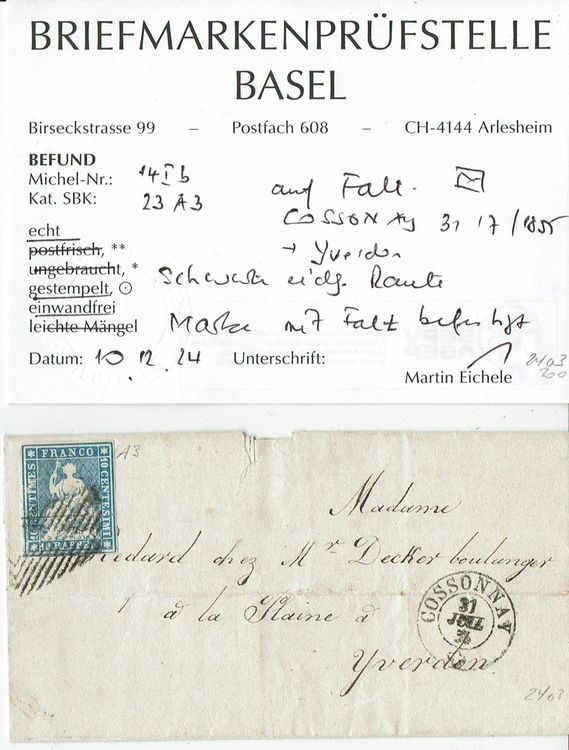 BRIEFMARKENPRÜFSTELLE
BASEL
Birseckstrasse 99 – Postfach 608 – CH-4144 Arlesheim
BEFUND
Michel-Nr.: 14 I b
Kat. SBK: 23 A3
auf Falt.
COSSONAY 31 17/1855
→ Yverdon
echt
postfrisch, **
ungebraucht, *
gestempelt, ⊙
einwandfrei
leichte Mängel
Schwarze eidg. Raute
Marke mit Falz befestigt
Datum: 10.12.24 Unterschrift:
Martin Eichele
2403
200
FRANCO
10 CENTIMES
10 CENTESIMI
10 RAPPEN
A3
Madame
Redard chez Mr Decker boulanger
à la Plaine à
Yverdon
COSSONAY
31
JUIL
2403